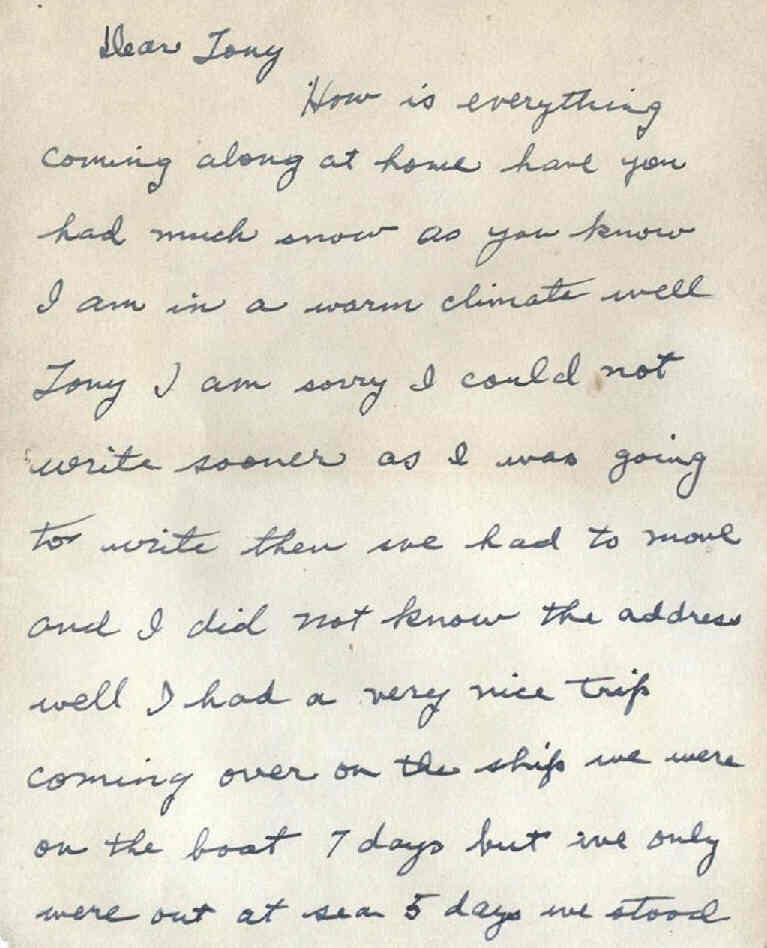 Dear Tony
How is everything
coming along at home have you
had much snow as you know
I am in a warm climate well
Tony I am sorry I could not
write sooner as I was going
to write then we had to move
and I did not know the address
well I had a very nice trip
coming over on the ship we were
on the boat 7 days but we only
were out at sea 5 days we stood